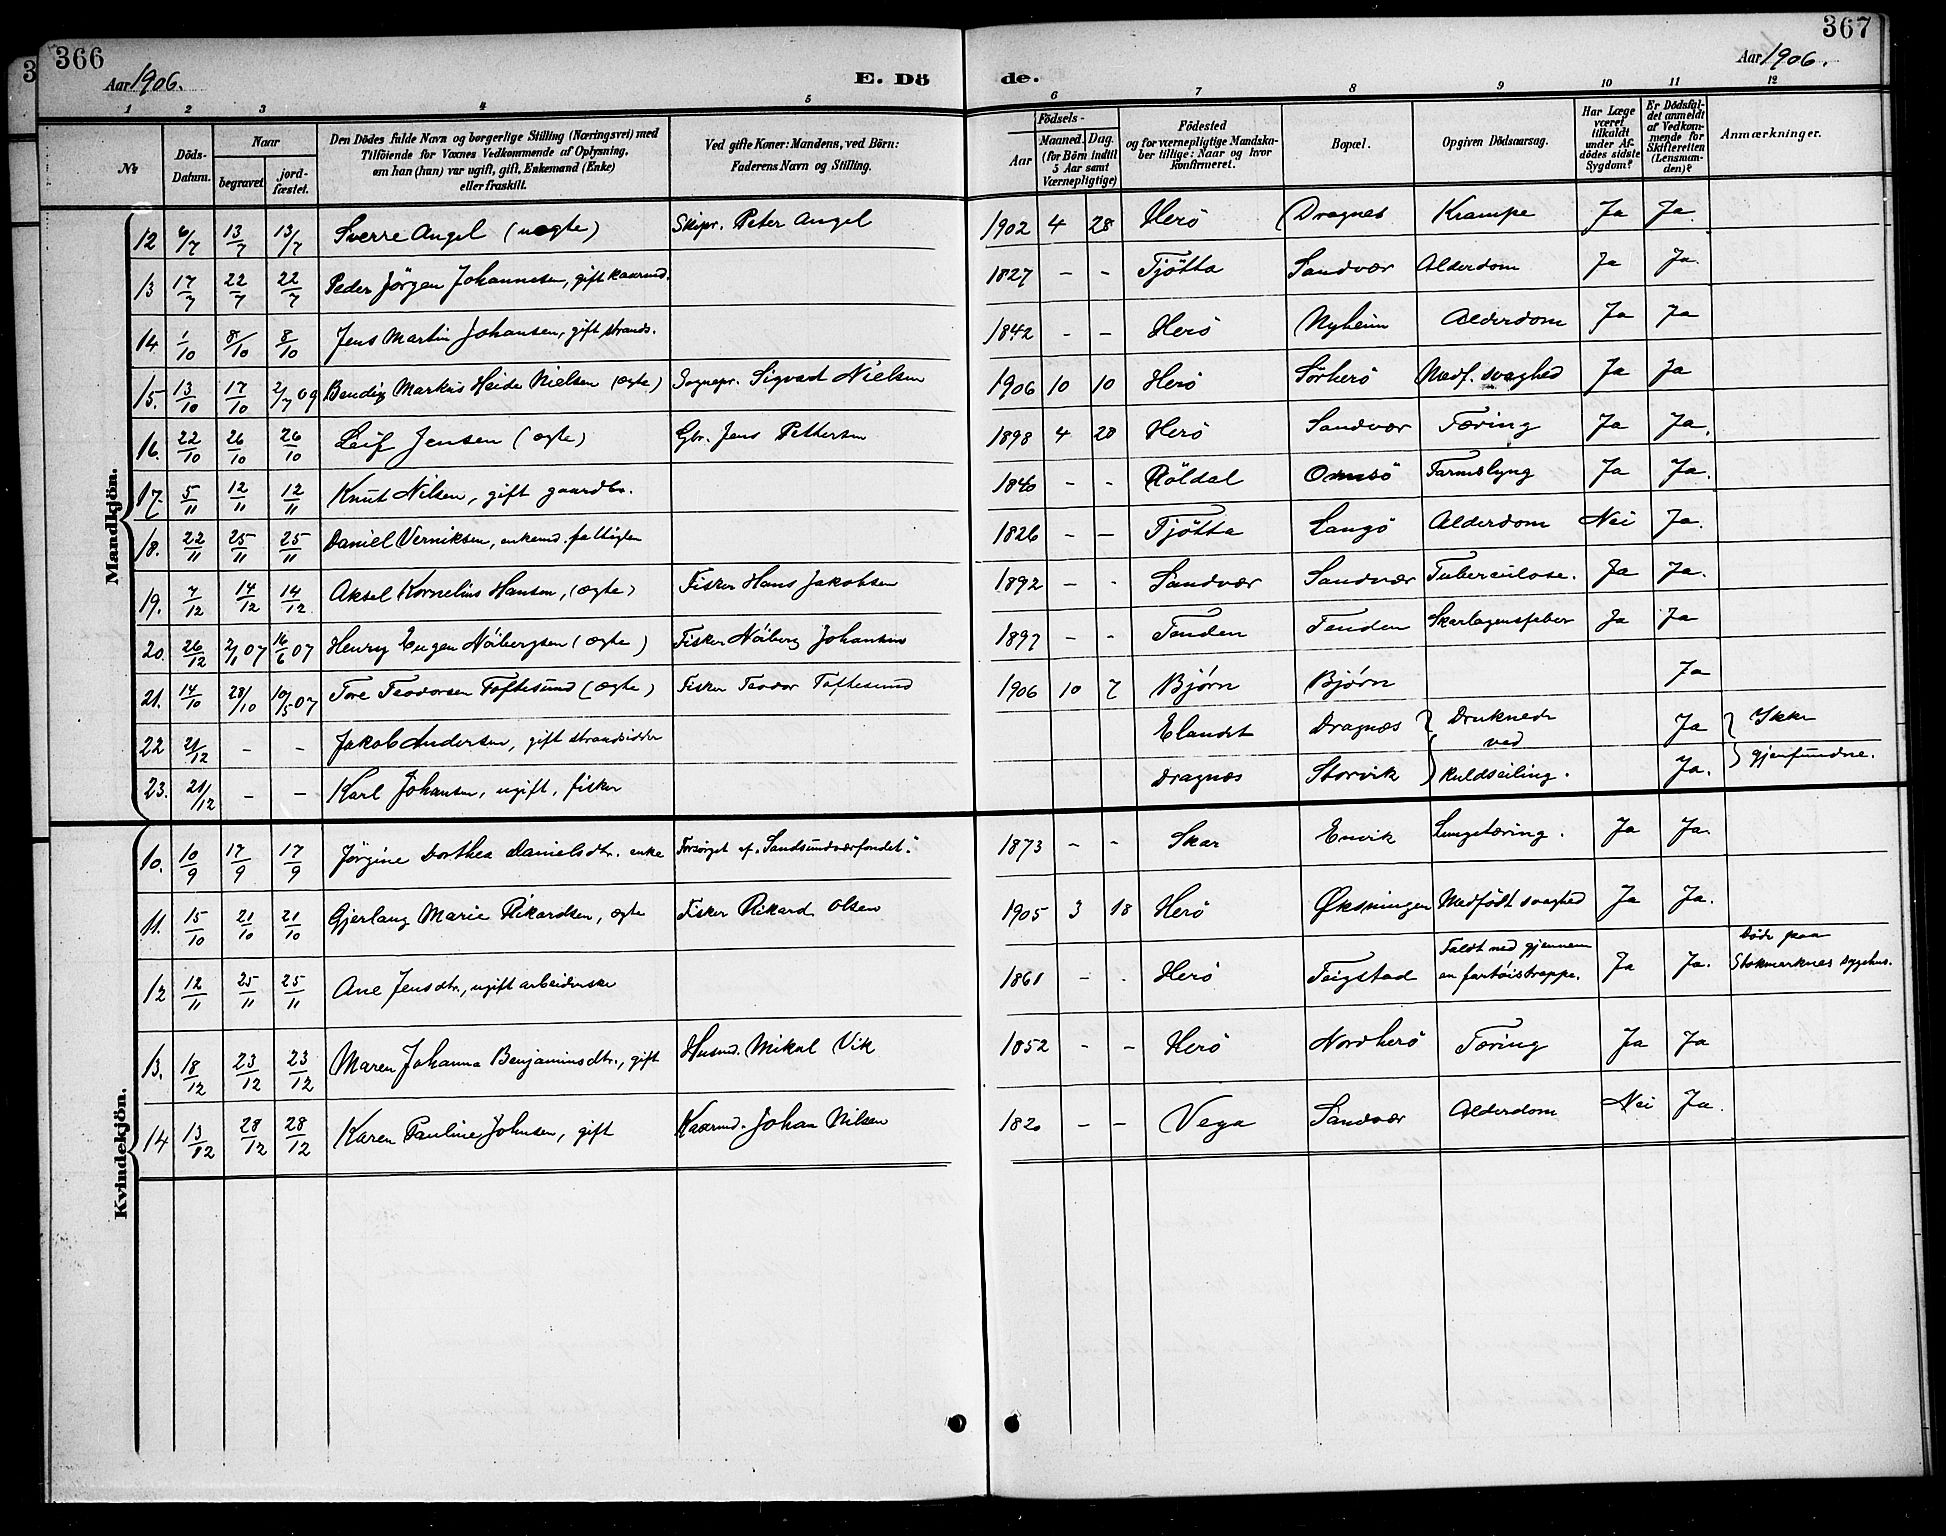 366
367
Aar 1906.
E. Dö
de.
Aar 1906.
1 2 3 4 5 6 7 8 9 10 11 12
No
Döds-Datum.
Naar
begravet
jord-fæstet.
Den Dödes fulde Navn og borgerlige Stilling (Næringsvei) med
Tilföiende for Voxnes Vedkommende af Oplysning,
om han (hun) var ugift, gift, Enkemand (Enke)
eller fraskilt.
Ved gifte Koner: Mandens, ved Börn:
Faderens Navn og Stilling.
Födsels-
Aar
Maaned. Dag.
(for Börn indtil
5 Aar samt
Værnepligtige)
Födested
og for værnepligtige Mandska-
ber tillige: Naar og hvor
konfirmeret.
Bopæl.
Opgiven Dödsaarsag.
Har Læge
været
tilkaldt
under Af-
dödes sidste
Sygdom?
Er Dödsfal-
det anmeldt
af Vedkom-
mende for
Skifteretten
(Lensman-
den)?
Anmærkninger.
Mandkjön.
12 6/7 13/7 13/7 Sverre Angel (uægte) Skipr. Peter Angel 1902 4 28 Herö Dragnes Krampe Ja Ja.
13 17/7 22/7 22/7 Peder Jörgen Johannesen, gift kaarmd. 1827 - - Tjötta Sandvær Alderdom Ja Ja.
14 1/10 8/10 8/10 Jens Martin Johansen, gift strands. 1842 - - Herö Nyheim Alderdom Ja Ja
15. 13/10 17/10 2/7 09 Bendix Markus Heide Nielsen (ægte) Sognepr. Sigvard Nielsen 1906 10 10 Herö Sörherö Medf. svaghed Ja Ja
16. 22/10 26/10 26/10 Leif Jensen (ægte) Gbr. Jens Pettersen 1898 4 28 Herö Sandvær Tæring Ja Ja.
17. 5/11 12/11 12/11 Knut Nilsen, gift gaardbr. 1840 - - Röldal Omsö Tarmslyng Ja Ja.
18. 22/11 25/11 25/11 Daniel Verniksen, enkemd. fattiglem 1826 - - Tjötta Langö Alderdom Nei Ja.
19. 7/12 14/12 14/12 Aksel Kornelius Hansen, (ægte) Fisker Hans Jakobsen 1892 - - Sandvær Sandvær Tuberculose. Ja Ja.
20. 26/12 2/1 07 16/6 07 Henry Eugen Nöibergsen (ægte) Fisker Nöiberg Johansen 1897 - - Tenden Tenden Skarlagensfeber Ja Ja
21. 14/10 28/10 10/5 07 Tore Teodorsen Toftesund (ægte) Fisker Teodor Toftesund 1906 10 7 Bjórn Bjórn Ja
22 21/12 - - Jakob Andersen, gift strandsidder Elandet Dragnæs Druknede ved Ja Ikke
23. 21/12 - - Karl Johansen, ugift, fisker Dragnæs Storvik kuldseiling. Ja. gjenfundne.
Kvindekjön.
10. 10/9 17/9 17/9 Jörgine Dorthea Danielsdtr. enke Forsörget af "Sandsundværfondet". 1873 - - Skar Envik Lungetæring. Ja Ja.
11. 15/10 21/10 21/10 Gjerlaug Marie Rikardsen, ægte Fisker Rikard Olsen 1905 3 18 Herö Øksningen Medfödt svaghed Ja Ja.
12 12/11 25/11 25/11 Ane Jensdtr., ugift arbeiderske 1861 - Herö Teigstad Faldt ned gjennem en fartöistrappe. Ja Ja. Döde paa Stokmarknes sygehus.
13. 18/12 23/12 23/12 Maren Johanna Benjaminsdtr., gift Husmd. Mikal Vik 1852 - - Herö Nordherö Tæring Ja Ja
14 13/12 28/12 28/12 Karen Pauline Johnsen, gift Kaarmd. Johan Nilsen 1820 - - Vega Sandvær Alderdom Nei Ja.